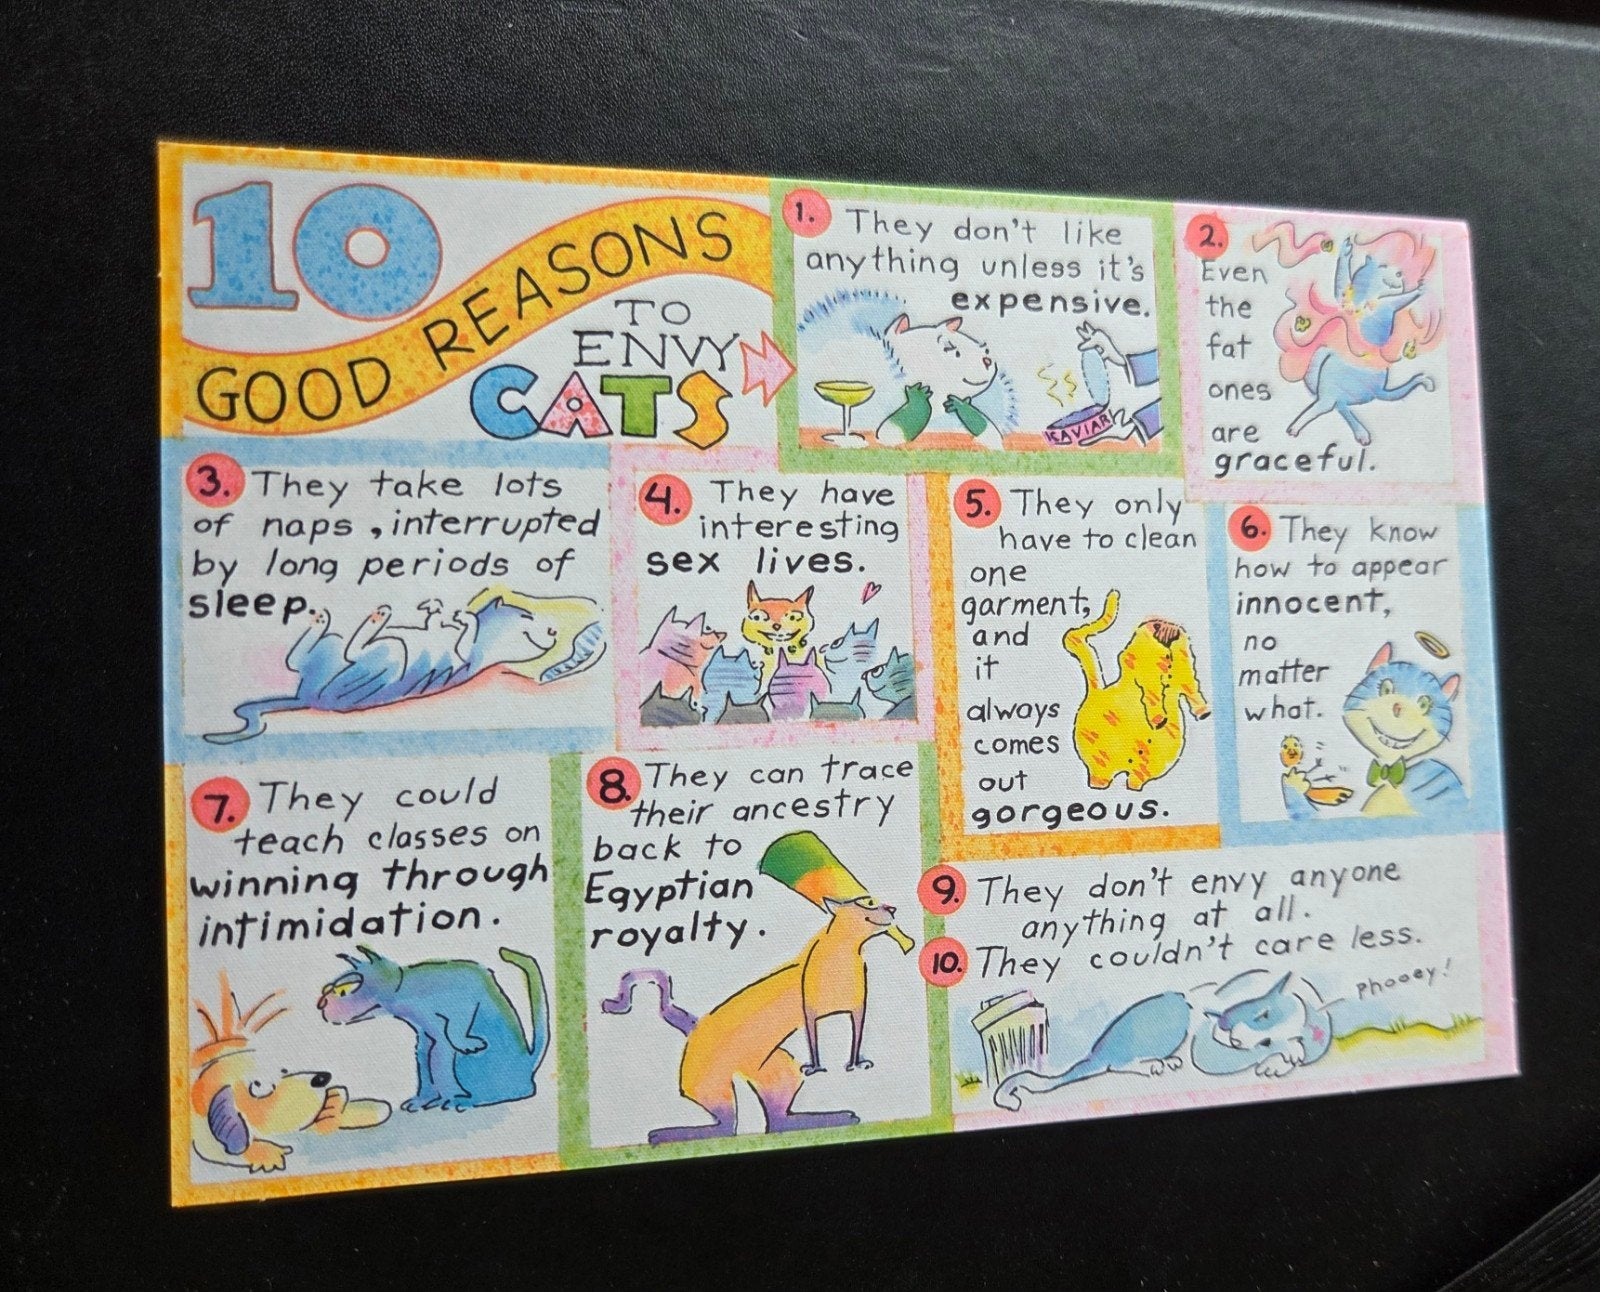 10
GOOD REASONS
TO
ENVY
CATS
1. They don't like
anything unless it's
expensive.
KAVIAR
2.
Even
the
fat
ones
are
graceful.
3. They take lots
of naps, interrupted
by long periods of
sleep.
4. They have
interesting
sex lives.
5. They only
have to clean
one
garment,
and
it
always
comes
out
gorgeous.
6. They know
how to appear
innocent,
no
matter
what.
7. They could
teach classes on
winning through
intimidation.
8. They can trace
their ancestry
back to
Egyptian
royalty.
9. They don't envy anyone
anything at all.
10. They couldn't care less.
Phooey!